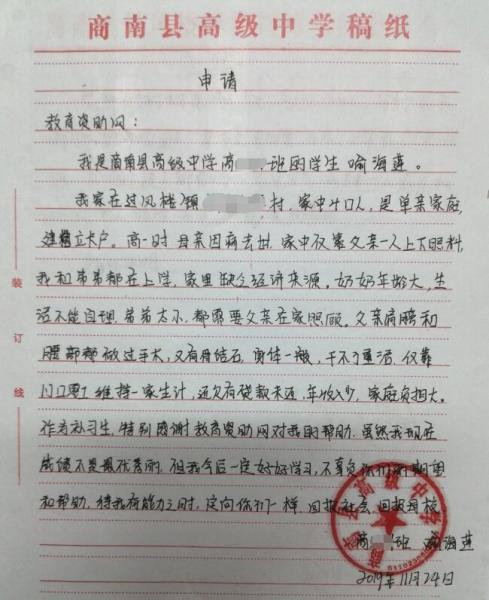 商南县高级中学稿纸
申请
教育资助网:
我是商南县高级中学高 班的学生 喻海莲。
我家在过风楼镇 村,家中4口人,是单亲家庭,
建档立卡户。高一时 母亲因病去世,家中仅靠父亲一人上下照料,
我和弟弟都在上学,家里缺乏经济来源。奶奶年龄大,生
活不能自理,弟弟太小,都需要父亲在家照顾。父亲肩膀和
腰部都做过手术,又有骨结石,身体一般,干不了重活,仅靠
门口零工维持一家生计,还欠有贷款未还,年收入少,家庭负担大。
作为补习生,特别感谢教育资助网对我的帮助,虽然我现在
成绩不是最优秀的,但我今后一定好好学习,不辜负你们的期望
和帮助,待我有能力之时,定向你们一样,回报社会,回报母校
高 班 喻海莲
2019年11月24日
装
订
线
商南县高级中学